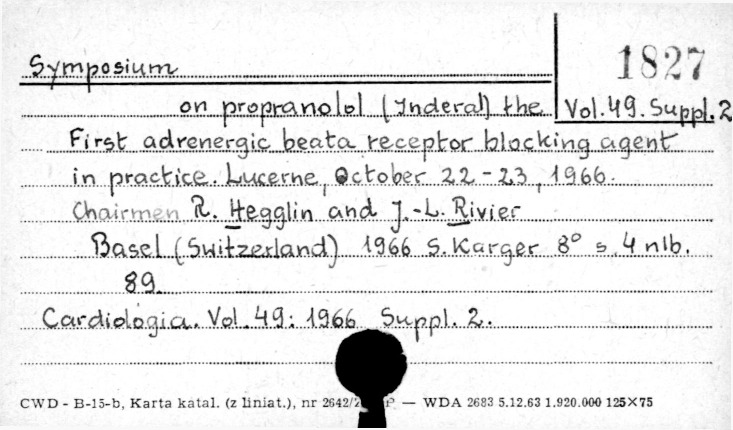 Symposium
1827
on propranolol (Inderal) the
Vol.49.Suppl.2
First adrenergic beata receptor blocking agent
in practice. Lucerne, October 22-23, 1966.
Chairmen R. Hegglin and J.-L. Rivier
Basel (Switzerland) 1966 S. Karger 8° s. 4 nlb.
89.
Cardiologia. Vol. 49: 1966 Suppl. 2.
CWD - B-15-b, Karta katal. (z liniat.), nr 2642/ P. — WDA 2683 5.12.63 1.920.000 125X75